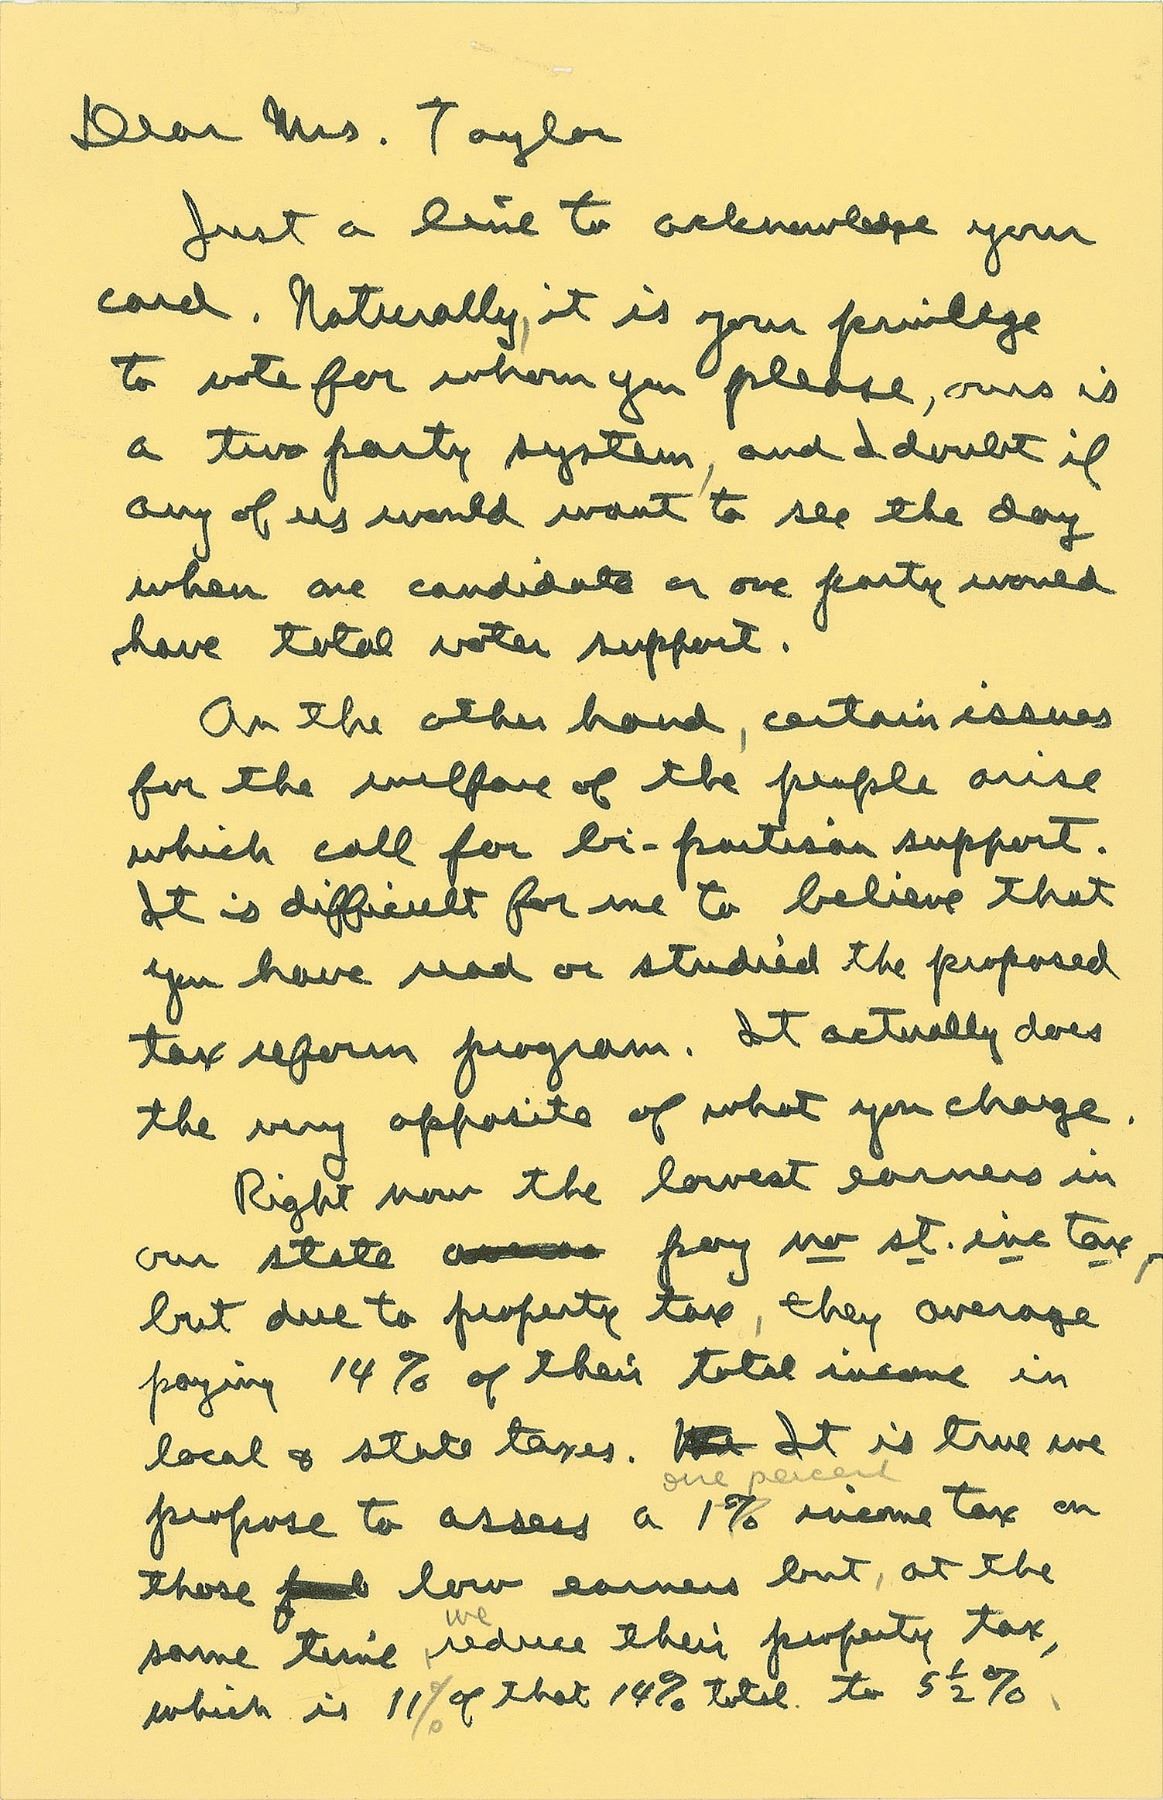 Dear Mrs. Taylor
Just a line to acknowledge your
card. Naturally, it is your privilege
to vote for whom you please, ours is
a two party system, and I doubt if
any of us would want to see the day
when one candidate or one party would
have total voter support.
On the other hand, certain issues
for the welfare of the people arise
which call for bi-partisan support.
It is difficult for me to believe that
you have read or studied the proposed
tax reform program. It actually does
the very opposite of what you charge.
Right now the lowest earners in
our state pay no st. inc tax,
but due to property tax, they average
paying 14% of their total income in
local & state taxes. It is true we
one percent
propose to assess a 1% income tax on
those low earners but, at the
we
same time, reduce their property tax,
which is 11% of that 14% total to 5½%.